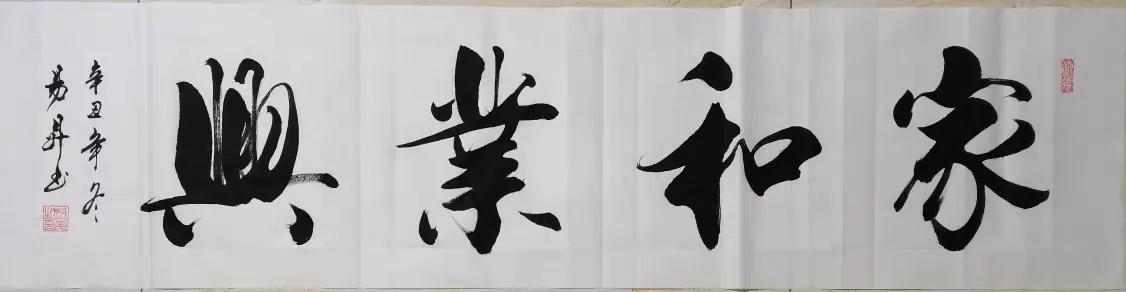 家和業興
辛丑年冬
易昇书